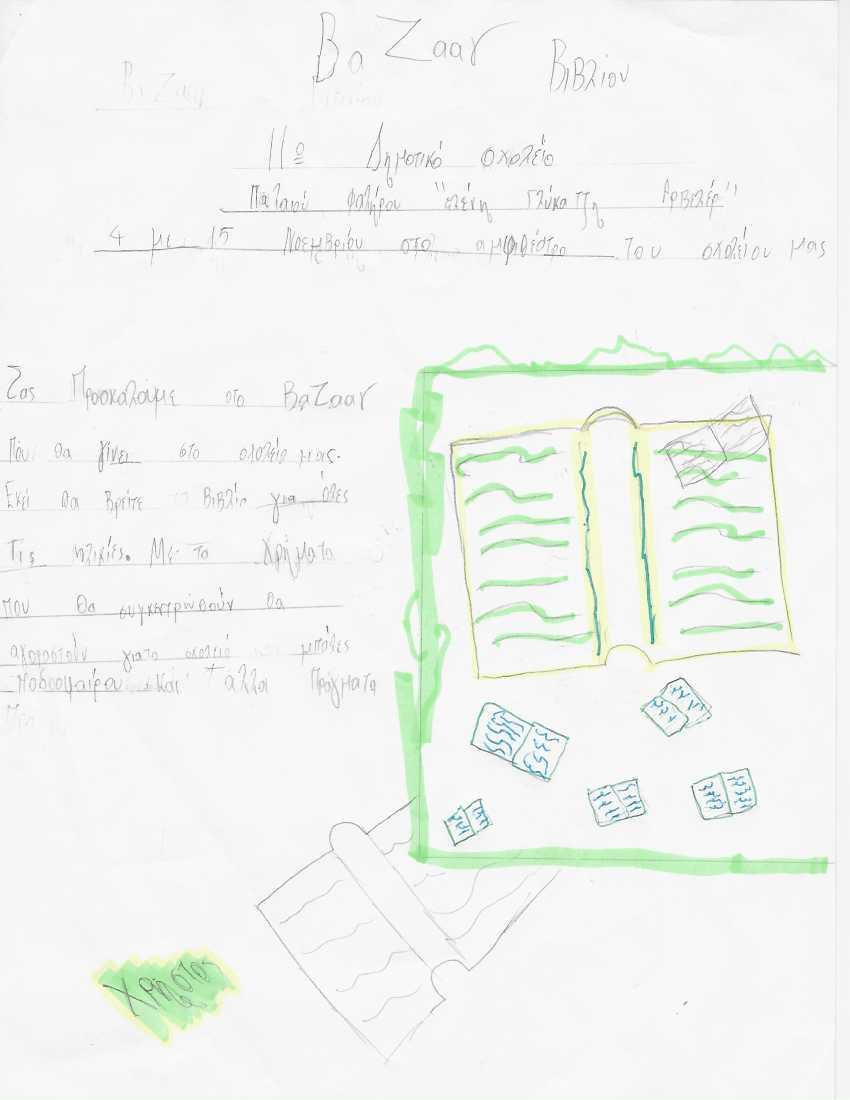 Βα Ζααγ Βιβλίου
11º Δημοτικό σχολείο
Παλαιού Φαλήρου "ελένη Γλύκατζη Αρβελέρ"
4 με 15 Νοεμβρίου στο αμφιθέατρο του σχολείου μας
Σας Προσκαλούμε στο ΒαΖααγ
που θα γίνει στο σχολείο μας.
Εκεί θα βρείτε βιβλία για όλες
Τις ηλικίες. Με το χρήματα
που θα συγκεντρωθούν θα
αγοραστούν για το σχολείο μπάλες
ποδοσφαίρου και άλλα πράγματα
Χρήστος